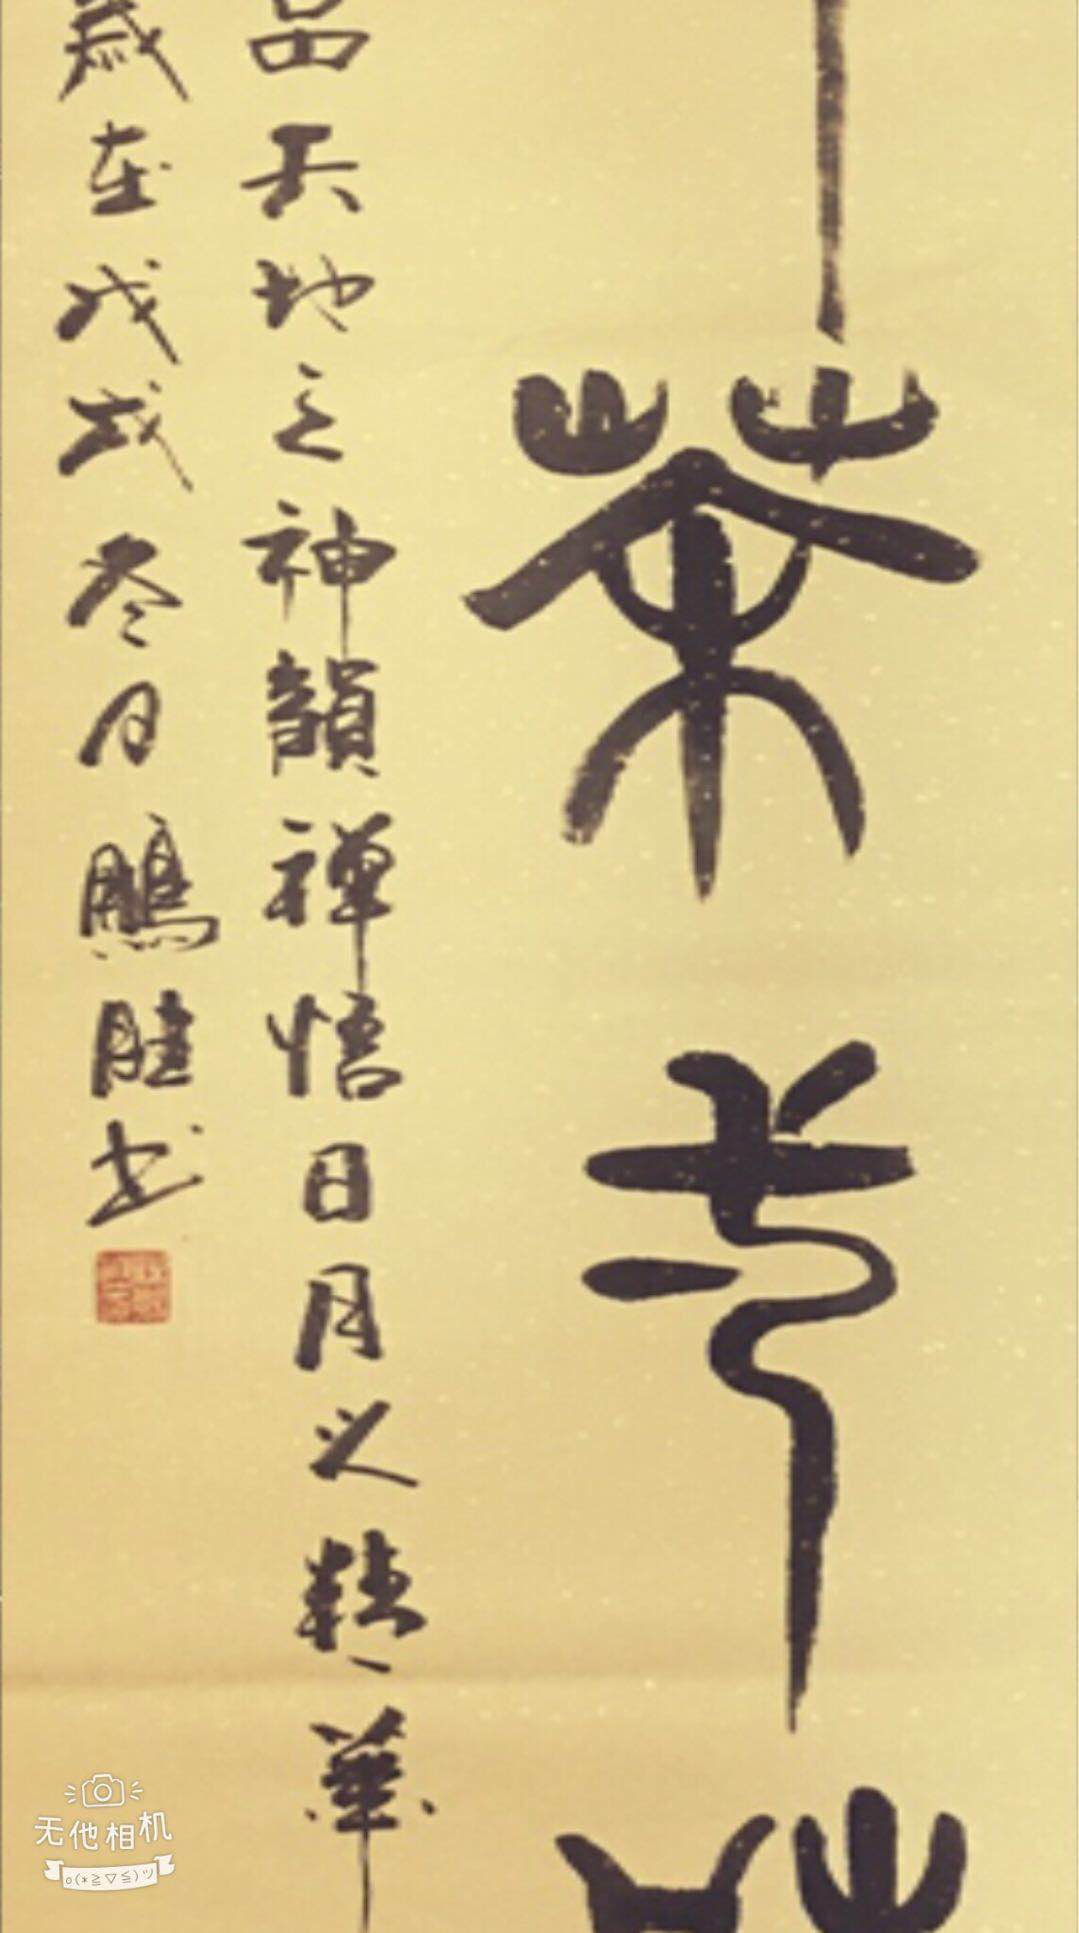 茶
品天地之神韻禅悟日月之精華
歲在戊戌冬月鵬胜书
无他相机
o(*≧▽≦)ツ